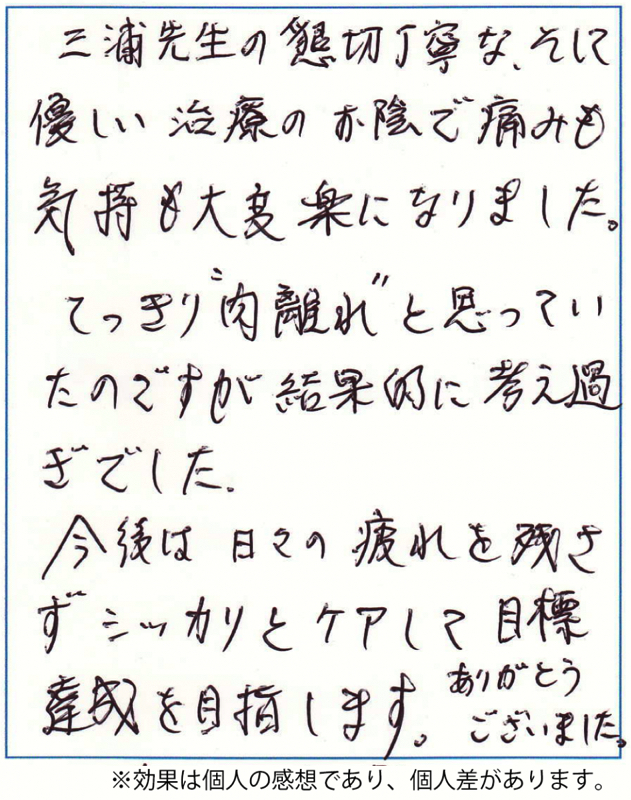 三浦先生の懇切丁寧な、そに
優しい治療のお陰で痛みも
気持も大変楽になりました。
てっきり"肉離れ"と思ってい
たのですが結果的に考え過
ぎでした。
今後は日々の疲れを残さ
ずシッカリとケアして目標
達成を目指します。
ありがとう
ございました。
※効果は個人の感想であり、個人差があります。